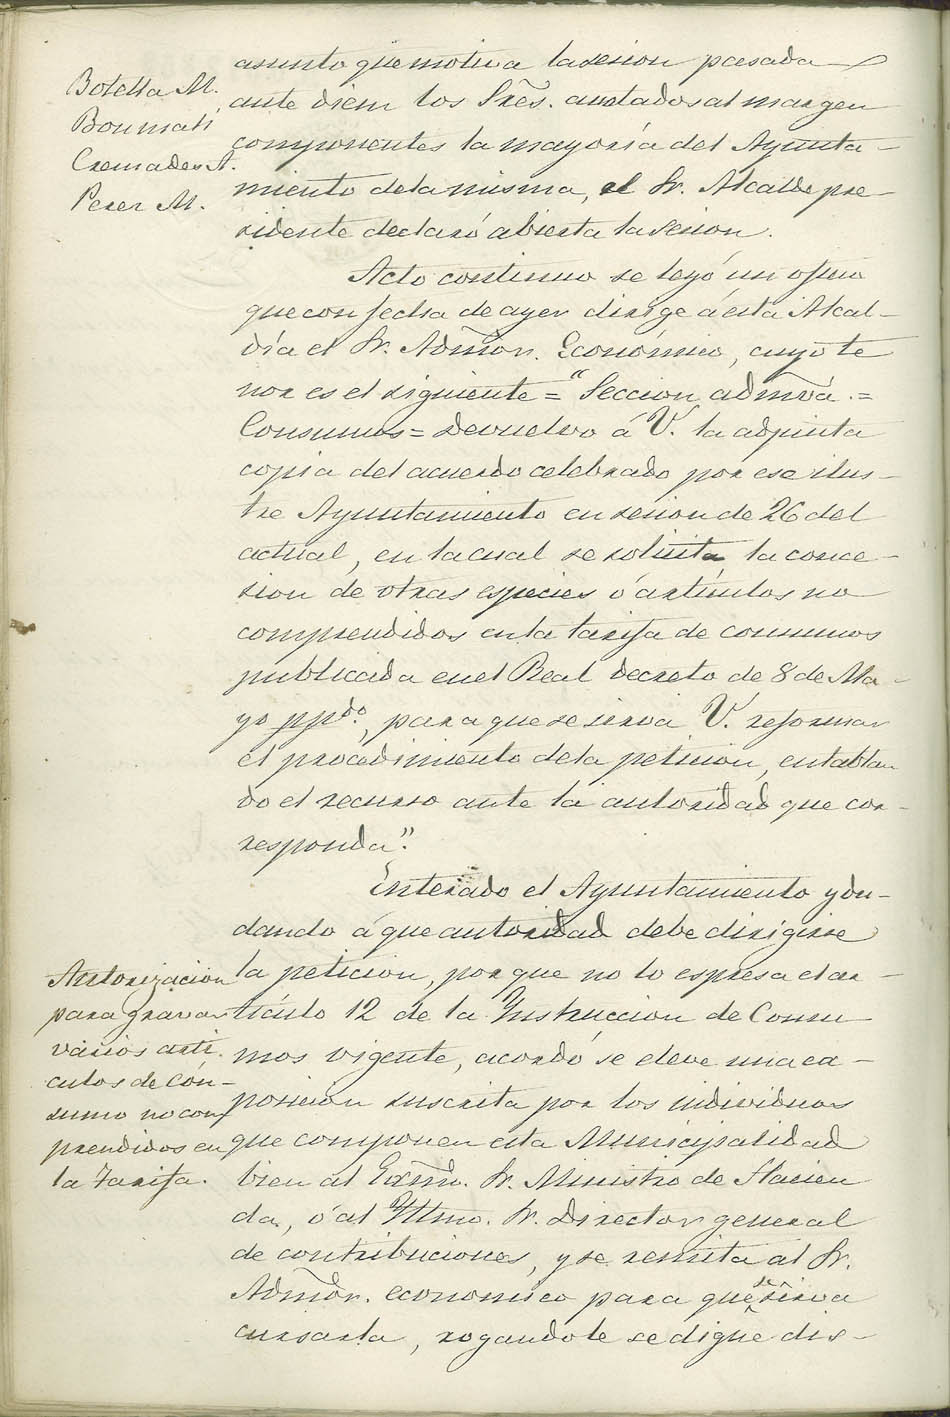 Botella M.
Bonmati
Cremades A.
Perez M.
asunto que motiva la sesion pasada
ante diem los Sres. anotados al margen
componentes la mayoría del Ayunta-
miento de la misma, el Sr. Alcalde pre-
sidente declaró abierta la sesion.
Acto continuo se leyó un oficio
que con fecha de ayer dirige á esta Alcal-
día el Sr. Admor. Económico, cuyo te
nor es el siguiente = "Seccion admva. =
Consumos = Devuelvo á V. la adjunta
copia del acuerdo celebrado por ese ilus-
tre Ayuntamiento en sesion de 26 del
actual, en la cual se solicita, la conce-
sion de otras especies ó artículos no
comprendidos en la tarifa de consumos
publicada en el Real decreto de 8 de Ma-
yo ppdo., para que se sirva V. reformar
el procedimiento de la peticion, entablan
do el recurso ante la autoridad que cor-
responda".
Enterado el Ayuntamiento y du-
dando á que autoridad debe dirigirse
la peticion, por que no lo espresa el ar-
tículo 12 de la Instruccion de Consu-
mos vigente, acordó se eleve una ex-
posicion suscrita por los individuos
que componen esta Municipalidad
bien al Exmo. Sr. Ministro de Hacien
da, ó al Iltmo. Sr. Director general
de contribuciones, y se remita al Sr.
Admor. economico para que se sirva
cursarla, rogandole se digne dis-
Autorizacion
para gravar
varios arti-
culos de con-
sumo no com
prendidos en
la Tarifa.